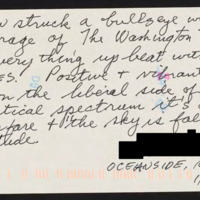 struck a bullseye w
rage of The Washington
very thing up-beat wit
ES! Positive + vibrant
n the liberal side of
tical spectrum it's
fare + the sky is fal
tude.
OCEANSIDE,